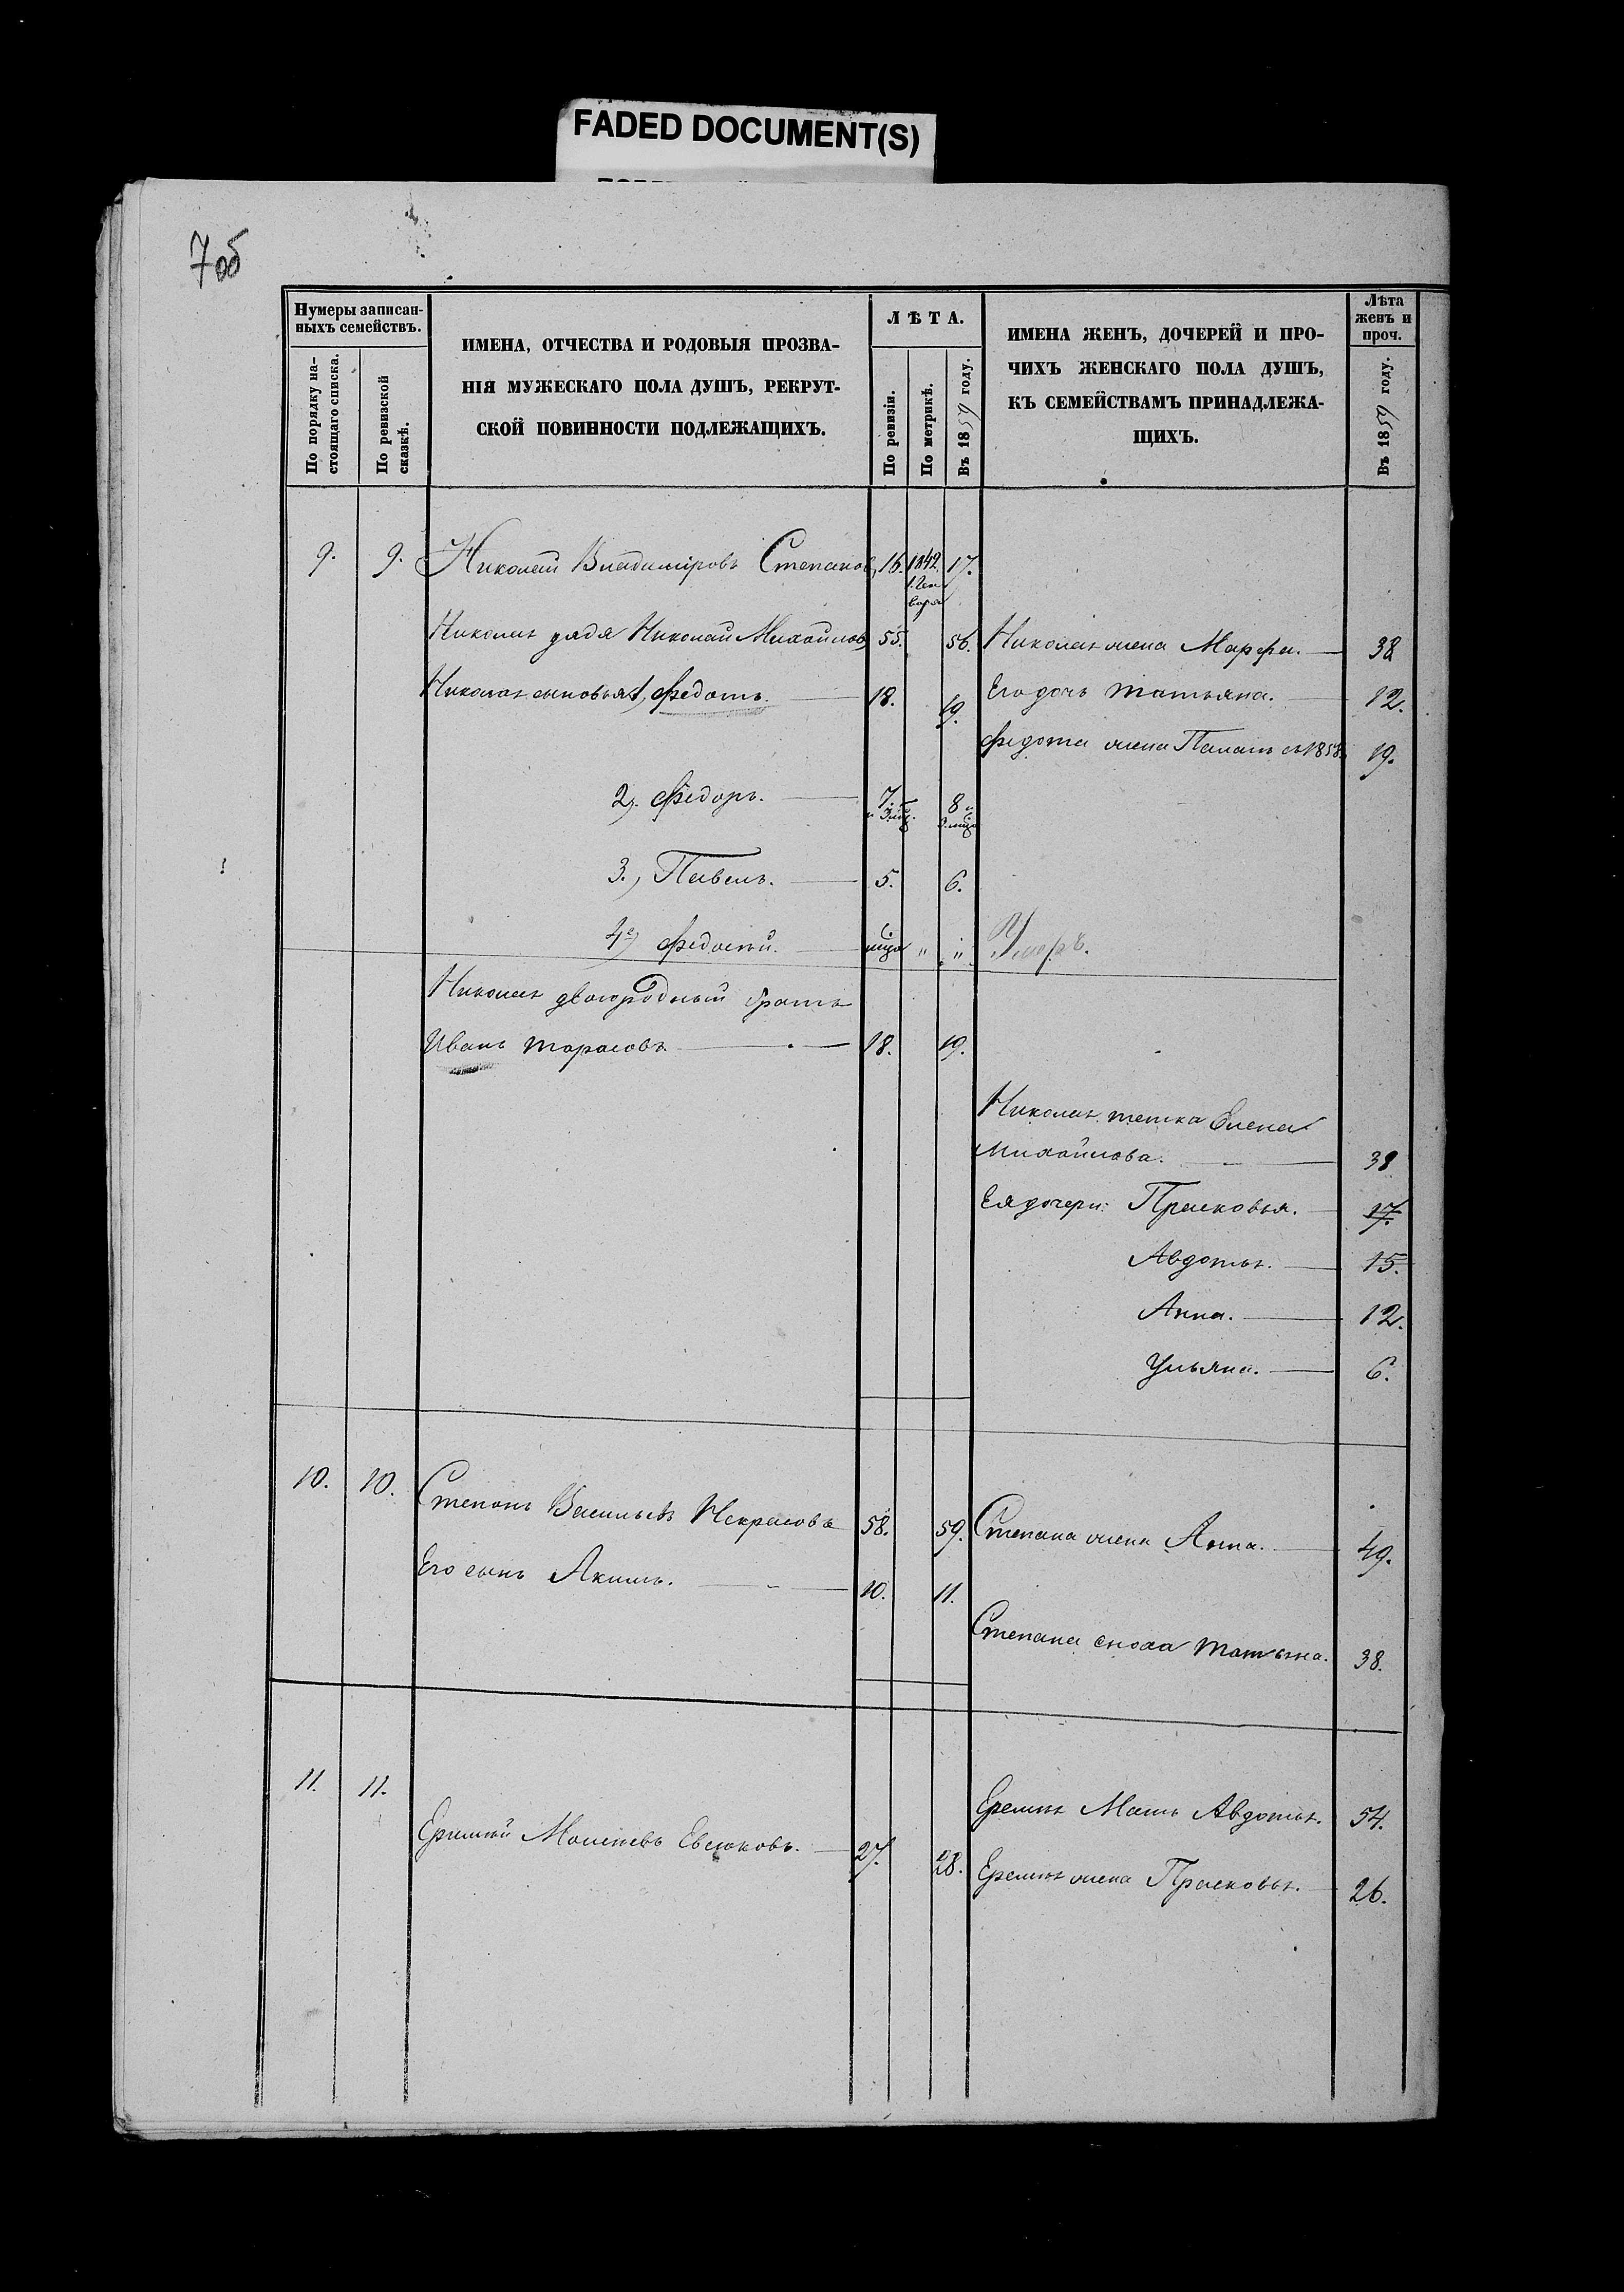 FADED DOCUMENT(S)
7об
Нумеры записан-
ныхъ семействъ.
По порядку на-
стоящаго списка.
По ревизской
сказкѣ.
ИМЕНА, ОТЧЕСТВА И РОДОВЫЯ ПРОЗВА-
НІЯ МУЖЕСКАГО ПОЛА ДУШЪ, РЕКРУТ-
СКОЙ ПОВИННОСТИ ПОДЛЕЖАЩИХЪ.
ЛѢТА.
По ревизіи.
По метрикѣ.
Въ 1859 году.
ИМЕНА ЖЕНЪ, ДОЧЕРЕЙ И ПРО-
ЧИХЪ ЖЕНСКАГО ПОЛА ДУШЪ,
КЪ СЕМЕЙСТВАМЪ ПРИНАДЛЕЖА-
ЩИХЪ.
Лѣта
женъ и
проч.
Въ 1859 году.
9. 9. Николай Владиміровъ Степановъ 16. 1842. 17.
Николая дядя Николай Михайловъ 55. 56. Николая жена Марфа. 38
Николая сыновья 1, Федотъ. 18. 19. Его дочь Татьяна. 12.
Федота жена съ 1858. 19.
2, Федоръ. 7. и 3 мѣс. 8 и 3 мѣс.
3, Павелъ. 5. 6.
4, Федосѣй. 6. мѣся " " Умеръ.
Николая двоюродный братъ
Иванъ Тарасовъ 18. 19.
Николая тетка Елена
Михайлова. 38
Ея дочери: Прасковья. 17.
Авдотья. 15.
Анна. 12.
Ульяна. 6.
10. 10. Степанъ Васильевъ Некрасовъ 58. 59. Степана жена Анна. 49.
Его сынъ Якимъ. 10. 11.
Степана сноха Татьяна. 38.
11. 11. Еремѣя Мать Авдотья. 54.
Еремѣй Моисеевъ Евсюковъ. 27. 28. Еремѣя жена Прасковья. 26.